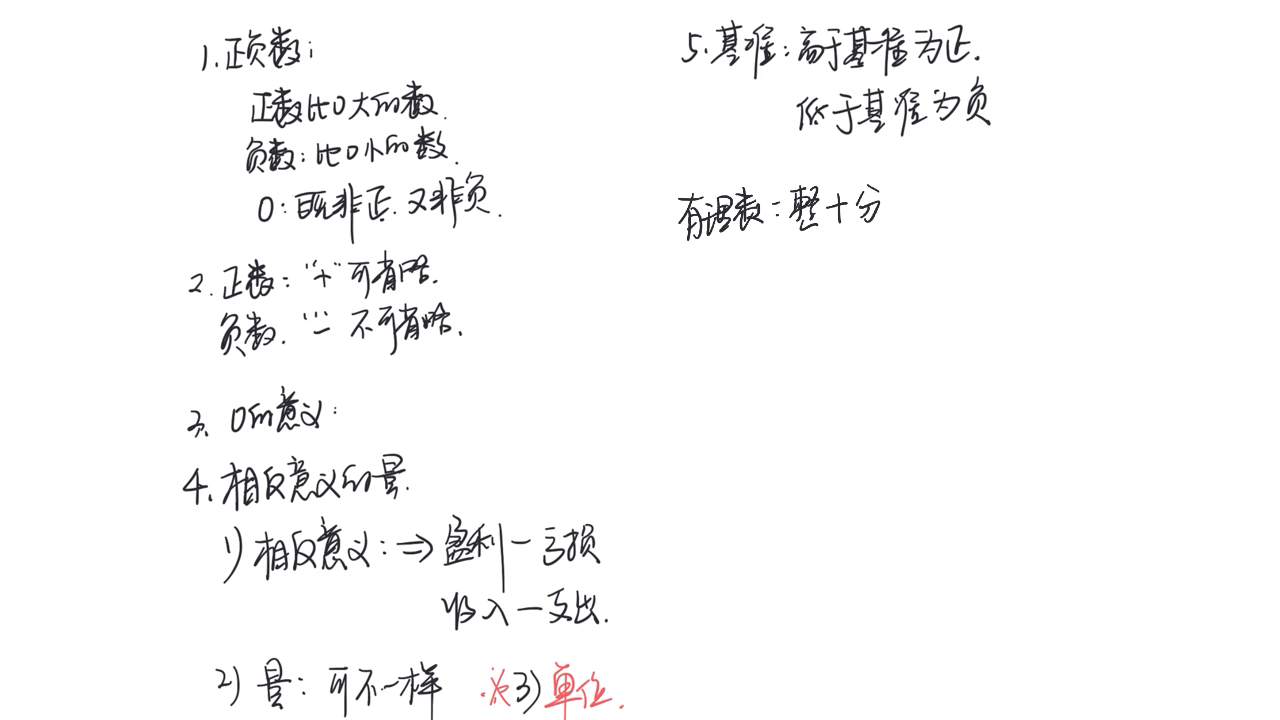 1. 正负数:
正数比0大的数.
负数: 比0小的数.
0: 既非正. 又非负.
2. 正数: "+" 可省略.
负数. "- 不可省略.
3. 0的意义:
4. 相反意义的量.
1) 相反意义: ⇒ 盈利一亏损
收入一支出.
2) 量: 可不一样 3) 单位.
5. 基准: 高于基准为正.
低于基准为负
有理数: 整十分